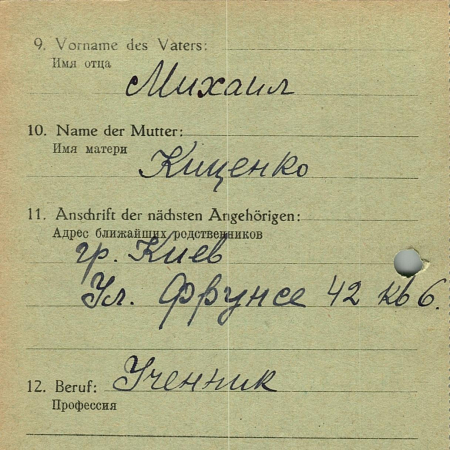 9. Vorname des Vaters:
Имя отца
Михаил
10. Name der Mutter:
Имя матери
Киценко
11. Anschrift der nächsten Angehörigen:
Адрес ближайших родственников
гр. Киев
Ул. Фрунсе 42 кв 6.
12. Beruf: Ученник
Профессия